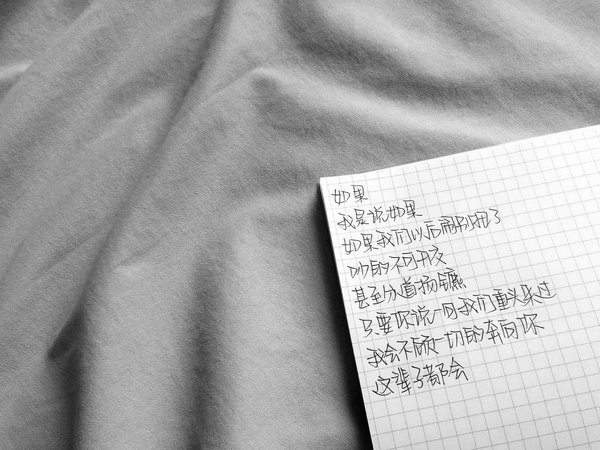 如果
我是说如果
如果我们以后闹别扭了
吵的不可开交
甚至分道扬镳
只要你说一句我们重头来过
我会不顾一切的奔向你
这辈子都会